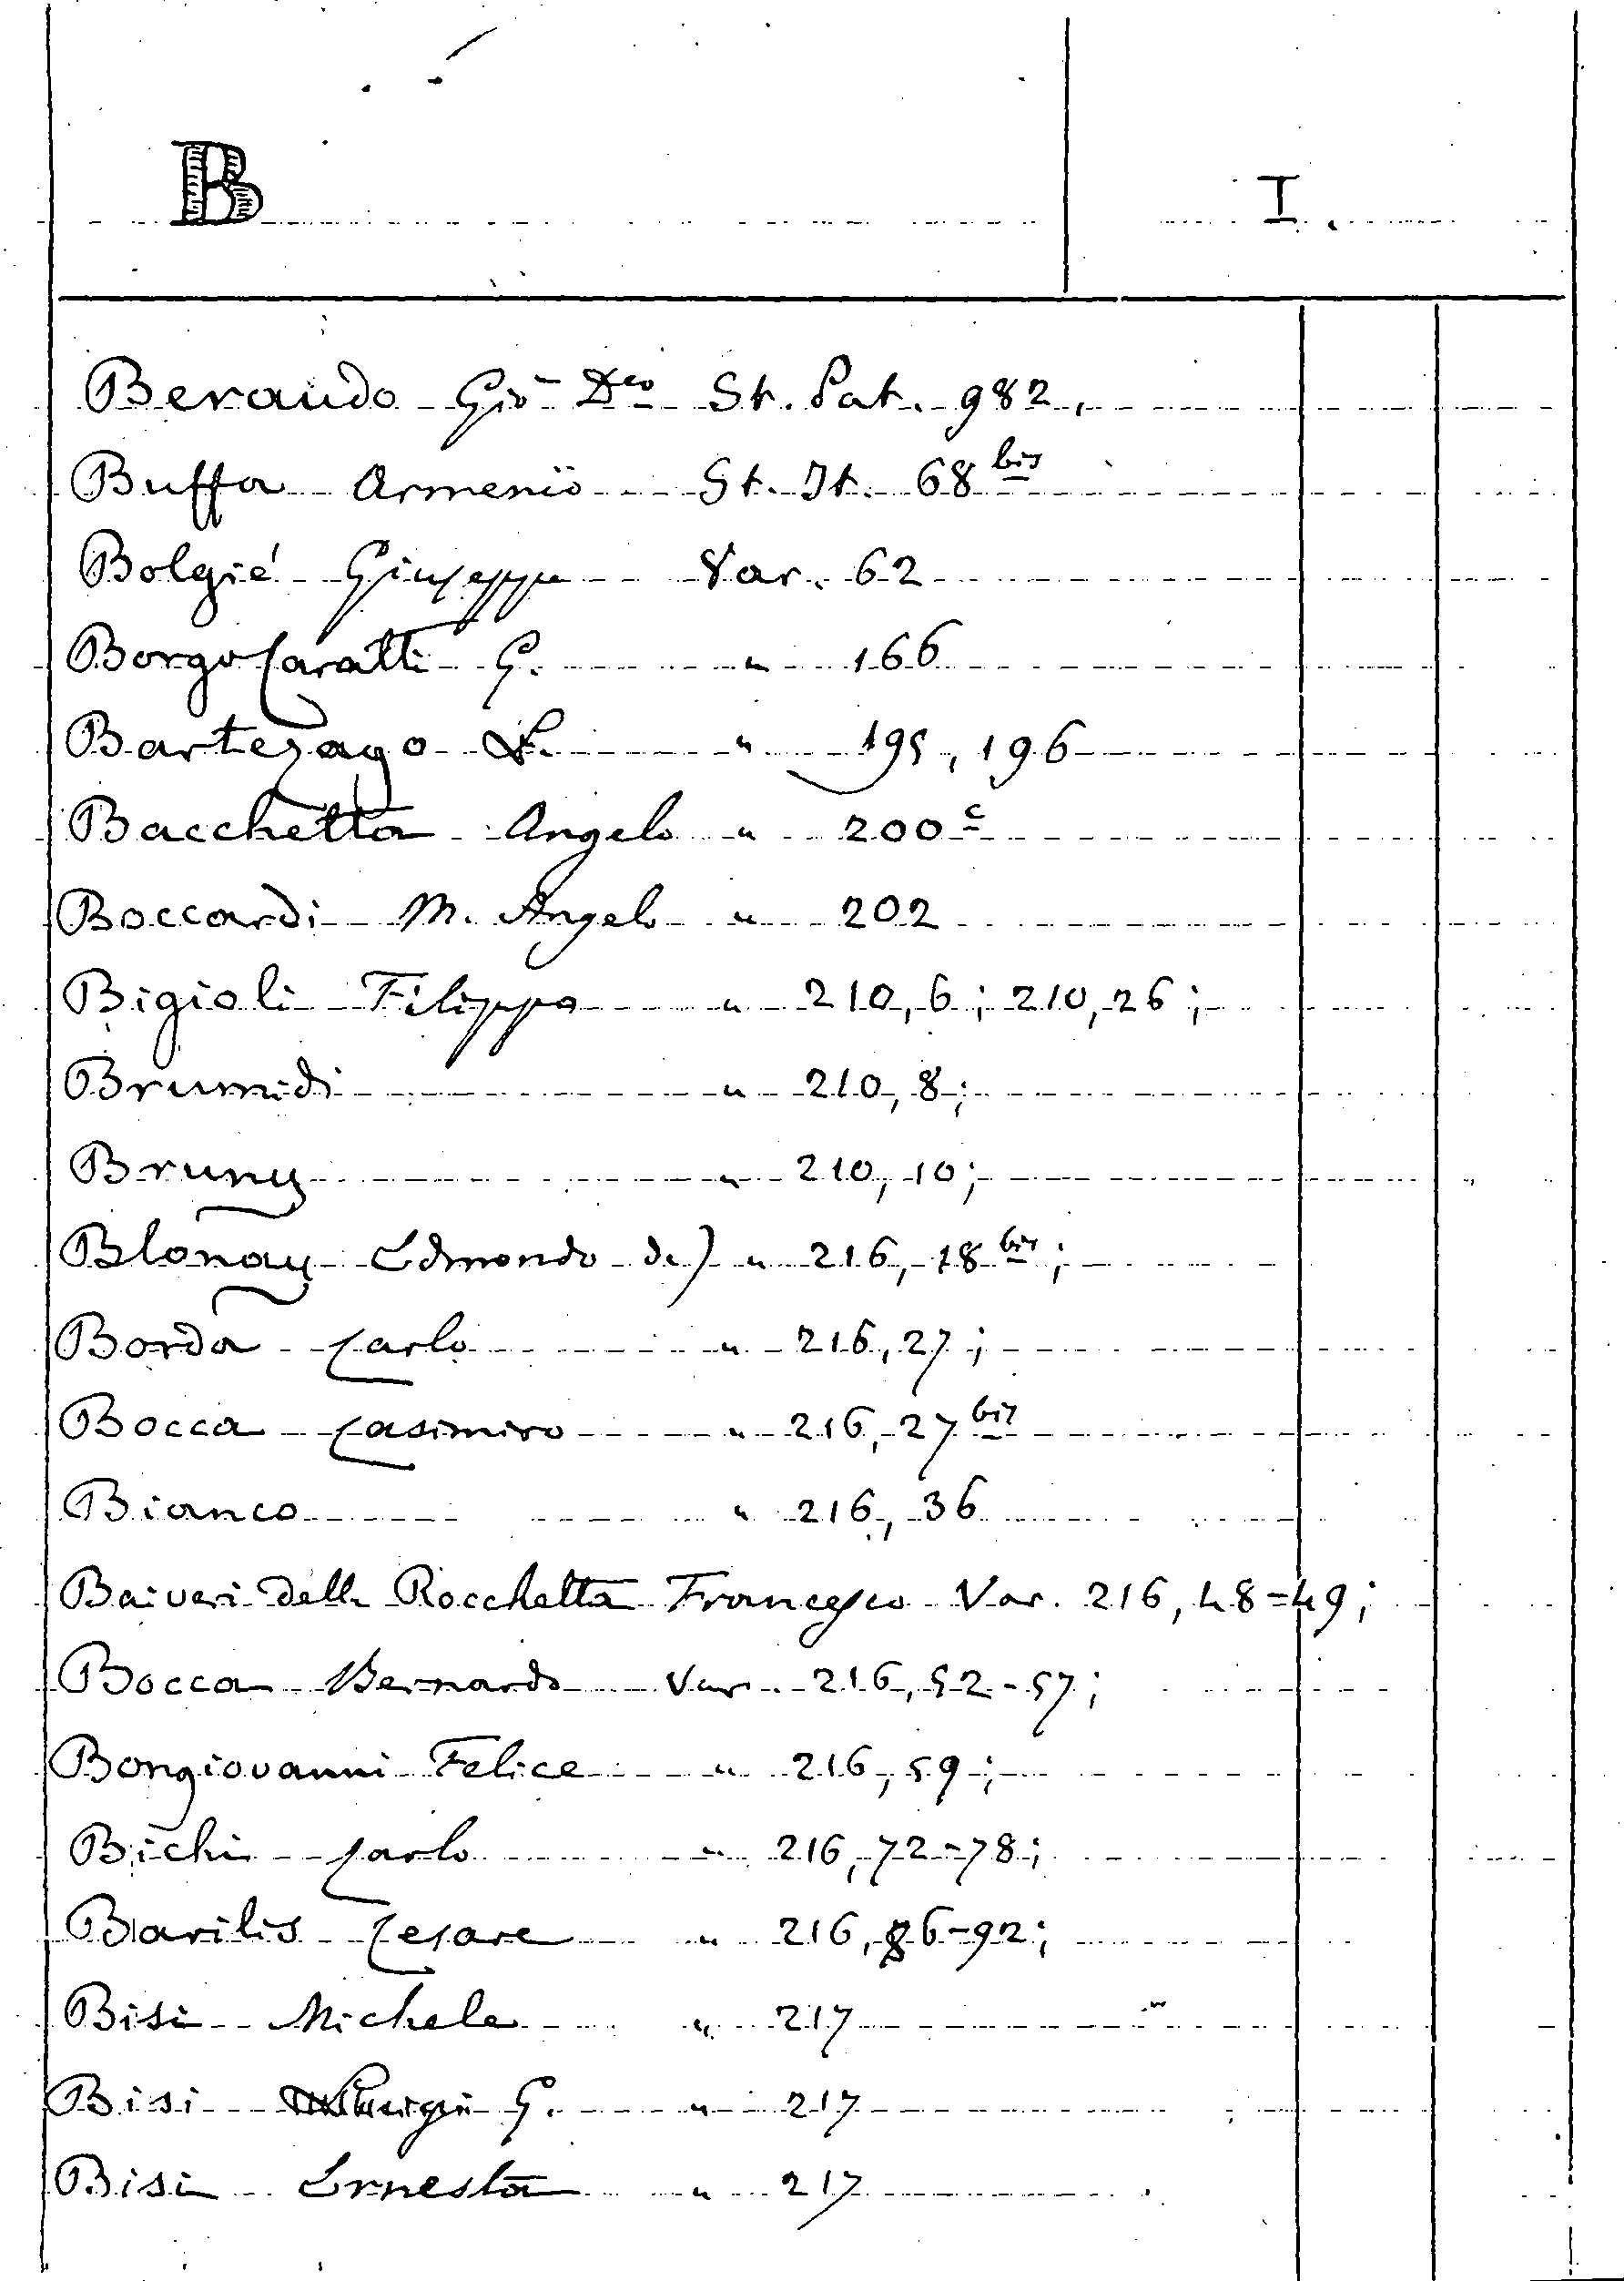 B I.
Beraudo Gio Dco St. Pat. 982,
Buffa Armenio St. It. 68 bis
Bolgié Giuseppe Var. 62
Borgo Caratti G. " 166
Bartezago L. " 195, 196
Bacchetta Angelo " 200 c
Boccardi M. Angelo " 202
Bigioli Filippo " 210, 6; 210, 26;
Brumidi " 210, 8;
Bruny " 210, 10;
Blonay Edmondo de) " 216, 18 bis;
Borda Carlo " 216, 27;
Bocca Casimiro " 216, 27 bis
Bianco " 216, 36
Baiveri della Rocchetta Francesco Var. 216, 48=49;
Bocca Bernardo Var. 216, 52-57;
Bongiovanni Felice " 216, 59;
Bichi Carlo " 216, 72-78;
Barilis Cesare " 216, 86-92;
Bisi Michele " 217
Bisi Luigi G. " 217
Bisi Ernesta " 217